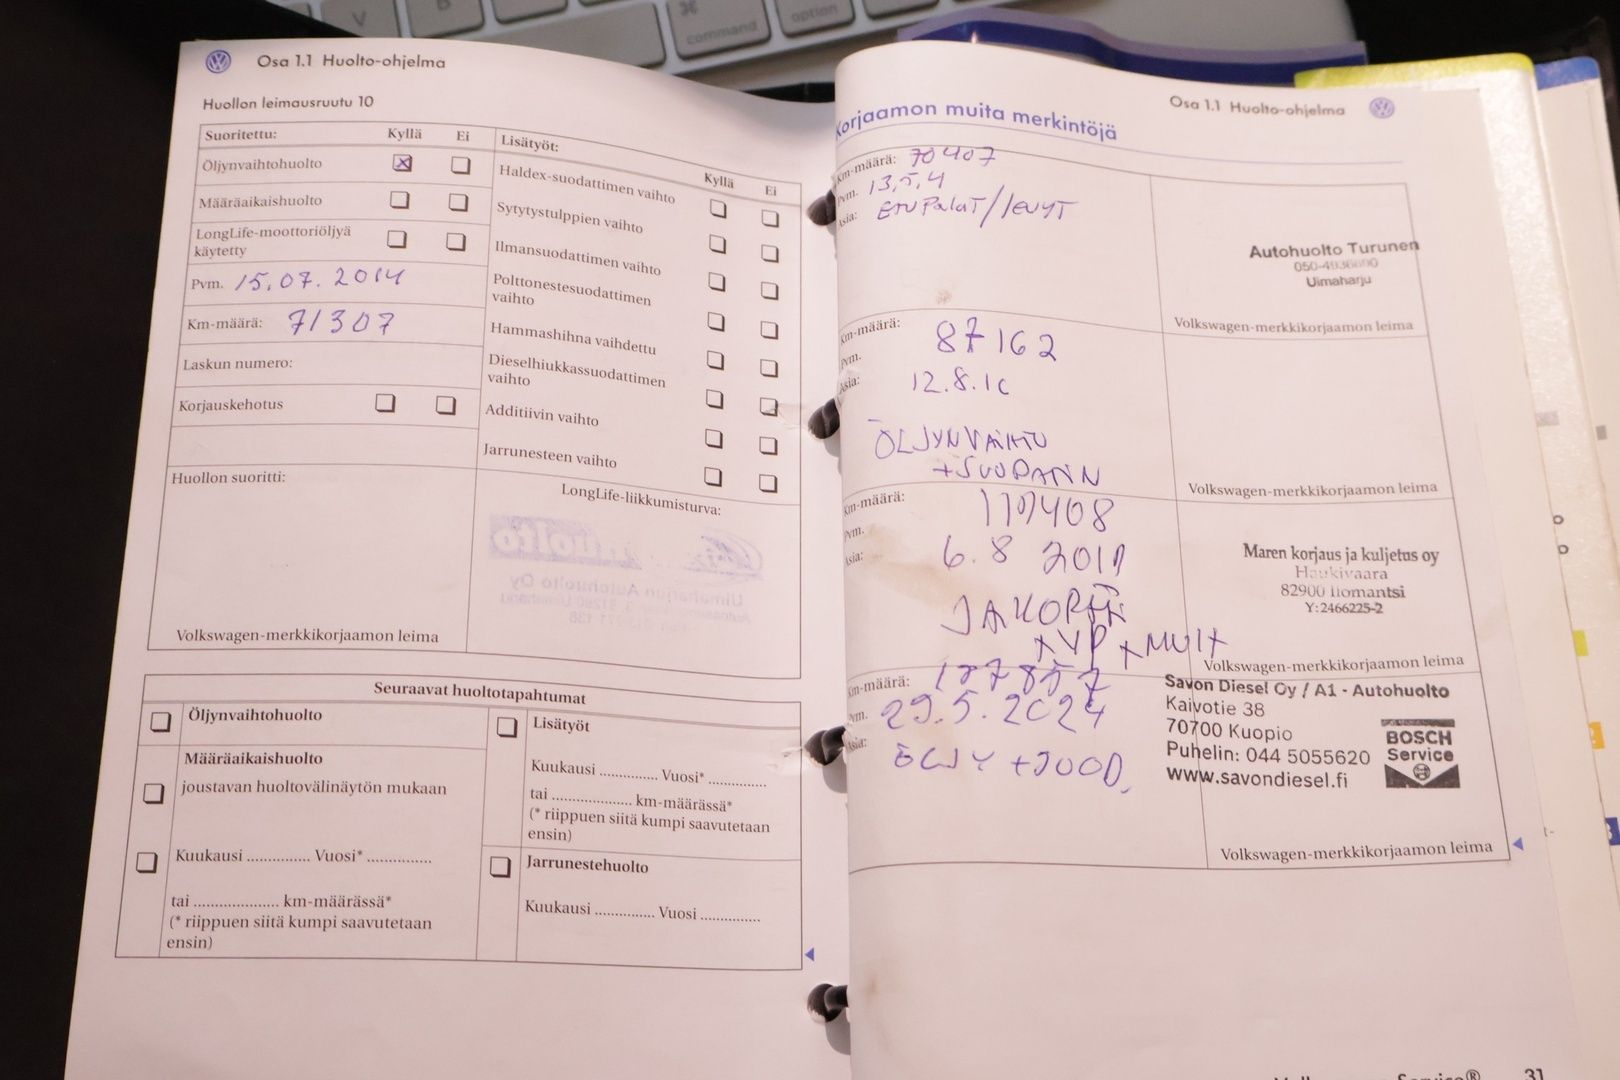 V
B
⌘
command
option
Osa 1.1 Huolto-ohjelma
Huollon leimausruutu 10
Suoritettu: Kyllä Ei
Öljynvaihtohuolto
Määräaikaishuolto
LongLife-moottoriöljyä
käytetty
Pvm. 15.07.2014
Km-määrä: 71307
Laskun numero:
Korjauskehotus
Huollon suoritti:
Volkswagen-merkkikorjaamon leima
Lisätyöt:
Kyllä Ei
Haldex-suodattimen vaihto
Sytytystulppien vaihto
Ilmansuodattimen vaihto
Polttonestesuodattimen
vaihto
Hammashihna vaihdettu
Dieselhiukkassuodattimen
vaihto
Additiivin vaihto
Jarrunesteen vaihto
LongLife-liikkumisturva:
Seuraavat huoltotapahtumat
Öljynvaihtohuolto
Määräaikaishuolto
joustavan huoltovälinäytön mukaan
Kuukausi .............. Vuosi* ..............
tai .................... km-määrässä*
(* riippuen siitä kumpi saavutetaan
ensin)
Lisätyöt
Kuukausi ............. Vuosi* .............
tai ................... km-määrässä*
(* riippuen siitä kumpi saavutetaan
ensin)
Jarrunestehuolto
Kuukausi ............. Vuosi .............
Osa 1.1 Huolto-ohjelma
Korjaamon muita merkintöjä
Km-määrä: 70407
Pvm. 13,5,4
Asia: ETUPalaT/levyT
Autohuolto Turunen
Uimaharju
Volkswagen-merkkikorjaamon leima
Km-määrä: 87162
Pvm.
Asia: 12.8.16
ÖLJYNVAIHTO
+SUODATIN
Volkswagen-merkkikorjaamon leima
Km-määrä:
Pvm.
Asia: 6.8
JAKOPÄÄ
+VP +MUIT
Maren korjaus ja kuljetus oy
Haukivaara
82900 Ilomantsi
Y:2466225-2
Volkswagen-merkkikorjaamon leima
Km-määrä: 187857
Pvm. 29.5.2024
Asia: ÖLJY +SUOD.
Savon Diesel Oy / A1 - Autohuolto
Kaivotie 38
70700 Kuopio
Puhelin: 044 5055620
www.savondiesel.fi
BOSCH
Service
Volkswagen-merkkikorjaamon leima
31